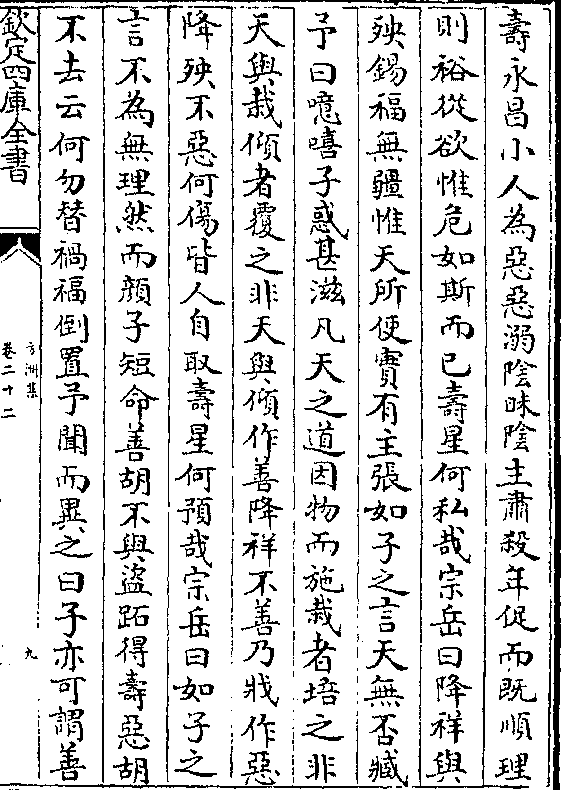 壽永昌小人為惡惡溺陰昧陰主肅殺年促而既順理
則裕從欲惟危如斯而已壽星何私哉宗岳曰降祥與
殃錫福無疆惟天所使實有主張如子之言天無否臧
予曰噫嘻子惑甚滋凡天之道因物而施栽者培之非
天與栽傾者覆之非天與傾作善降祥不善乃戕作惡
降殃不惡何傷皆人自取壽星何預哉宗岳曰如子之
言不為無理然而顔子短命善胡不與盜跖得壽惡胡
不去云何勿替禍福倒置予聞而異之曰子亦可謂善
欽定四庫全書
方洲集
卷二十二
九